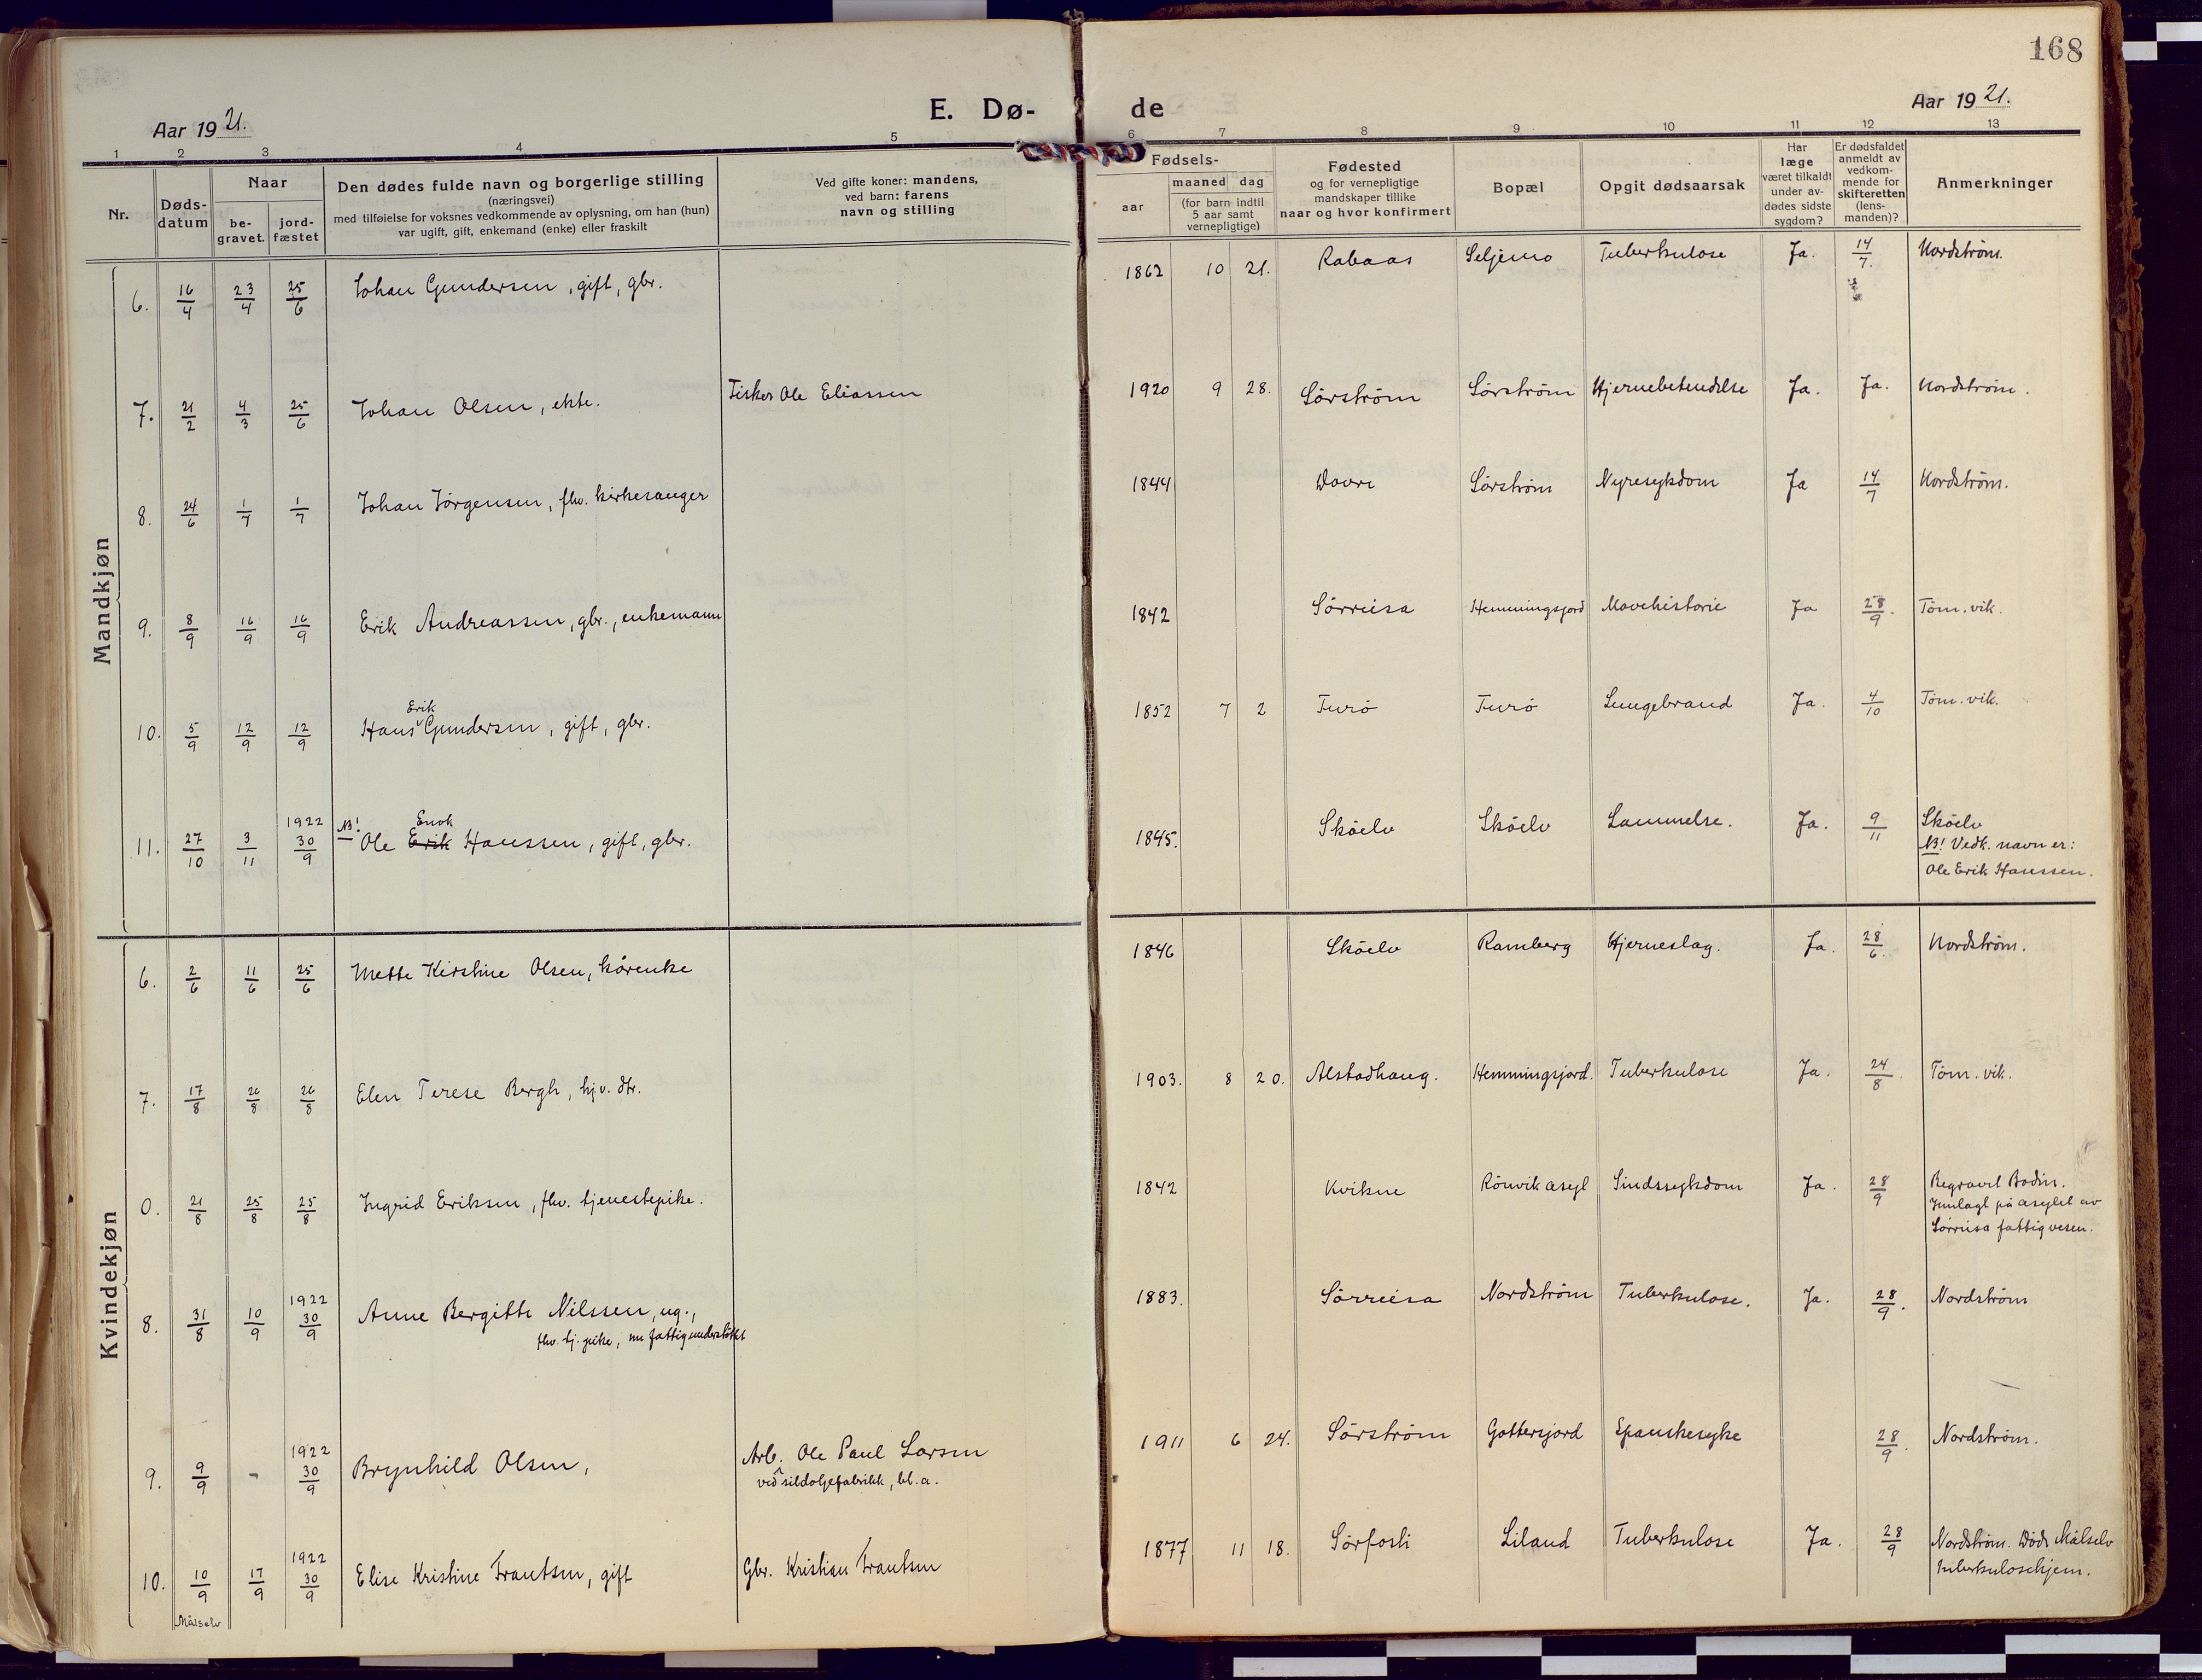 168
E. Dø- de
Aar 1921.
Aar 1921.
1 2 3 4 5 6 7 8 9 10 11 12 13
Nr.
Døds-
datum
Naar
be-
gravet.
jord-
fæstet
Den dødes fulde navn og borgerlige stilling
(næringsvei)
med tilføielse for voksnes vedkommende av oplysning, om han (hun)
var ugift, gift, enkemand (enke) eller fraskilt
Ved gifte koner: mandens,
ved barn: farens
navn og stilling
Fødsels-
aar
maaned dag
(for barn indtil
5 aar samt
vernepligtige)
Fødested
og for vernepligtige
mandskaper tillike
naar og hvor konfirmert
Bopæl
Opgit dødsaarsak
Har
læge
været tilkaldt
under av-
dødes sidste
sygdom?
Er dødsfaldet
anmeldt av
vedkom-
mende for
skifteretten
(lens-
manden)?
Anmerkninger
Mandkjøn
6. 16/4 23/4 25/6 Johan Gundersen, gift, gbr. 1862 10 21. Rabaas Seljemo Tuberkulose Ja. 14/7. Nordstrøm.
7. 21/2 4/3 25/6 Johan Olsen, ekte. Fisker Ole Eliassen 1920 9 28. Sörström Sörström Hjernebetendelse Ja. Ja. Nordström.
8. 24/6 1/7 1/7 Johan Jörgensen, fhv. kirkesanger 1844 Dovre Sörström Nyresykdom Ja 14/7 Nordström.
9. 8/9 16/9 16/9 Erik Andreassen, gbr., enkemann 1842 Sörreisa Hemmingsjord Mavehistorie Ja 28/9. Töm. vik.
Erik
10. 5/9 12/9 12/9 Hans Gundersen, gift, gbr. 1852 7 2 Furö Furö Lungebrand Ja. 4/10 Töm. vik.
1922 Enok
11. 27/10 3/11 30/9 NB! Ole Erik Hanssen, gift, gbr. 1845. Sköelv Sköelv Lammelse. Ja. 9/11 Sköelv
NB! Vedk. navn er:
Ole Erik Hanssen.
Kvindekjøn
6. 2/6 11/6 25/6 Mette Kirstine Olsen, kårenke 1846 Sköelv Ramberg Hjerneslag. Ja. 28/6. Nordström.
7. 17/8 26/8 26/8 Elen Terese Bergh, hjv. dtr. 1903. 8 20. Alstadhaug. Hemmingsjord. Tuberkulose Ja. 24/8. Töm. vik.
0. 21/8 25/8 25/8 Ingrid Eriksen, fhv. tjenestepike. 1842 Kvikne Rönvik asyl Sindssykdom Ja. 28/9 Begravet Bodin.
Innlagt på asylet av
Sörreisa fattigvesen.
1922
8. 31/8 10/9 30/9 Anne Bergitte Nilssen, ug., 1883. Sörreisa Nordström Tuberkulose. Ja. 28/9. Nordström
fhv. tj. pike, nu fattigunderstöttet
1922
9. 9/9 - 30/9 Brynhild Olsen, Arb. Ole Paul Larsen 1911 6 24. Sörström Gottersjord Spanskesyke 28/9. Nordström.
ved sildoljefabrikk, bl. a.
1922
10. 10/9 17/9 30/9 Elise Kristine Frantsen, gift Gbr. Kristian Frantsen 1877 11 18. Sörfosli Liland Tuberkulose Ja. 28/9 Nordström. Död i Målselv
tuberkulosehjem.
Målselv